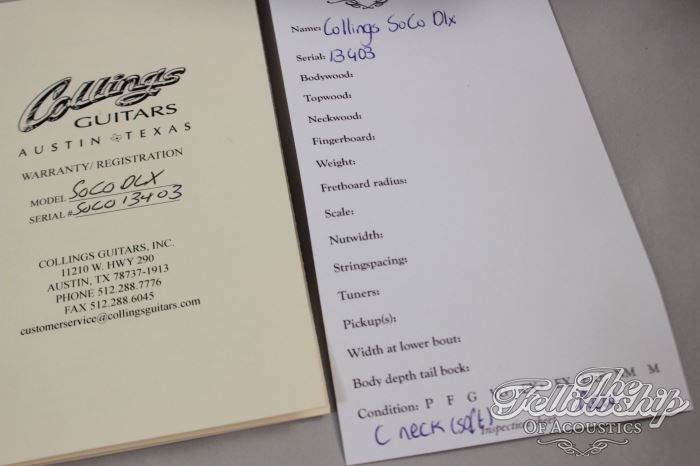 Collings
GUITARS
AUSTIN TEXAS
WARRANTY/ REGISTRATION
MODEL SoCo DLX
SERIAL # SoCo 13403
COLLINGS GUITARS, INC.
11210 W. HWY 290
AUSTIN, TX 78737-1913
PHONE 512.288.7776
FAX 512.288.6045
customerservice@collingsguitars.com
Name: Collings SoCo Dlx
Serial: 13403
Bodywood:
Topwood:
Neckwood:
Fingerboard:
Weight:
Fretboard radius:
Scale:
Nutwidth:
Stringspacing:
Tuners:
Pickup(s):
Width at lower bout:
Body depth tail bock:
Condition: P F G M M
C neck (soft)
The
Fellowship
OF ACOUSTICS